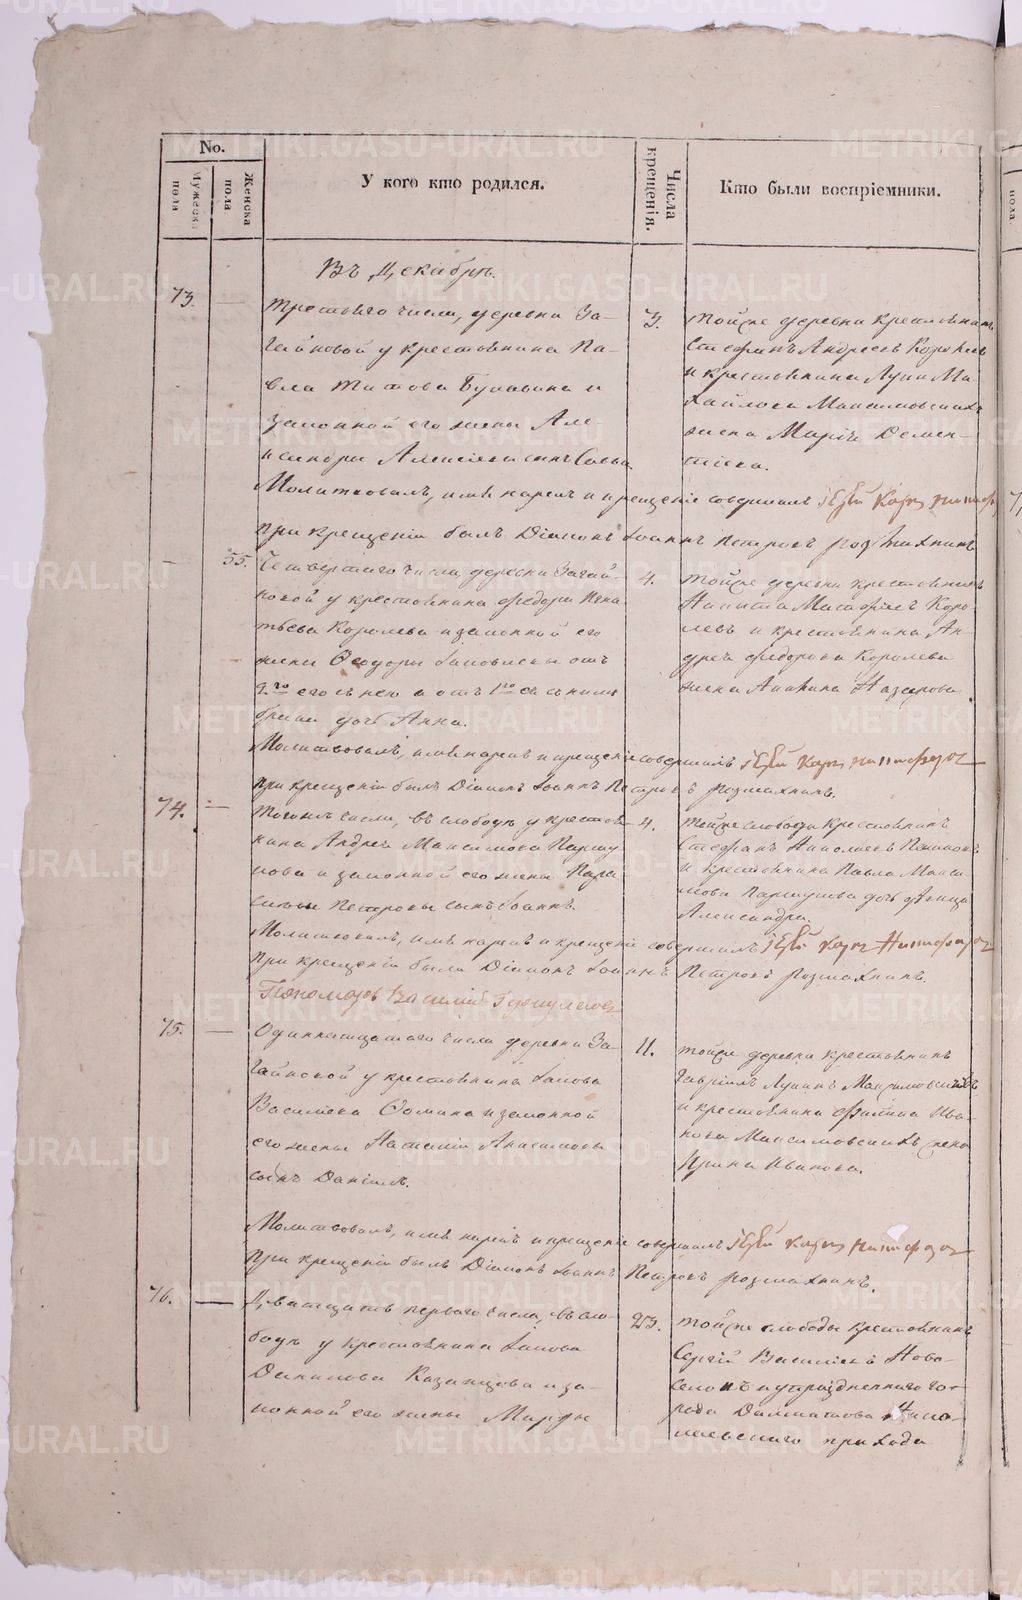 No.
Мужеска пола
Женска пола
У кого кто родился.
Числа крещенія.
Кто были воспріемники.
Въ Декабрѣ.
73.
Третьяго числа, деревни За-
гайновой у крестьянина Па-
вла Титова Булавина и
законной его жены Але-
ксандры Алексѣевы сынъ Савва.
3.
тойже деревни крестьянинъ
Стефанъ Андреевъ Королевъ
и крестьянина Луки Ми-
хайлова Максимовскихъ
жена Марія Демен-
тіева.
Молитвовалъ, имя нарекъ и крещеніе совершилъ Іерей Карпъ
при крещеніи былъ Діаконъ Іоаннъ Петровъ Розмахнинъ.
55.
Четвертаго числа, деревни Загай-
новой у крестьянина Федора Игна-
тьева Королева и законной его
жены Феодоры Іаковлевы отъ
2го его съ нею а отъ 1го ея съ нимъ
брака дочь Анна.
4.
тойже деревни крестьянинъ
Никита Матфеевъ Коро-
левъ и крестьянина Ан-
дрея Федорова Королева
жена Акилина Назарова.
Молитвовалъ, имя нарекъ и крещеніе совершилъ Іерей Карпъ Никифоровъ
при крещеніи былъ Діаконъ Іоаннъ Петровъ Розмахнинъ.
74.
Тогожъ числа, въ слободѣ у крестья-
нина Андрея Максимова Паршу-
кова и законной его жены Пара-
скевы Петровы сынъ Іоаннъ.
4.
тойже слободы крестьянинъ
Стефанъ Николаевъ
и крестьянина Павла Макси-
мова дочь дѣвица
Александра.
Молитвовалъ, имя нарекъ и крещеніе совершилъ Іерей Карпъ Никифоровъ
при крещеніи были Діаконъ Іоаннъ Петровъ Розмахнинъ.
Пономарь Василій
75.
Одиннатцатаго числа деревни За-
гайновой у крестьянина Іакова
Васильева Фомина и законной
его жены Настасіи Анисимовы
сынъ Даніилъ.
11.
тойже деревни крестьянинъ
Гавріилъ Лукинъ Максимовскихъ
и крестьянина Филипа Ива-
нова Максимовскихъ жена
Ирина Иванова.
Молитвовалъ, имя нарекъ и крещеніе совершилъ Іерей Карпъ Никифоровъ
При крещеніи былъ Діаконъ Іоаннъ Петровъ Розмахнинъ.
76.
Дватцать перваго числа, въ сло-
бодѣ у крестьянина Іакова
Данилова Казанцова и за-
конной его жены Марфы
23.
тойже слободы крестьянинъ
Сергій Васильевъ Ново-
селовъ и упраздненнаго го-
рода Далматова Нико-
лаевскаго прихода
METRIKI.GASO-URAL.RU